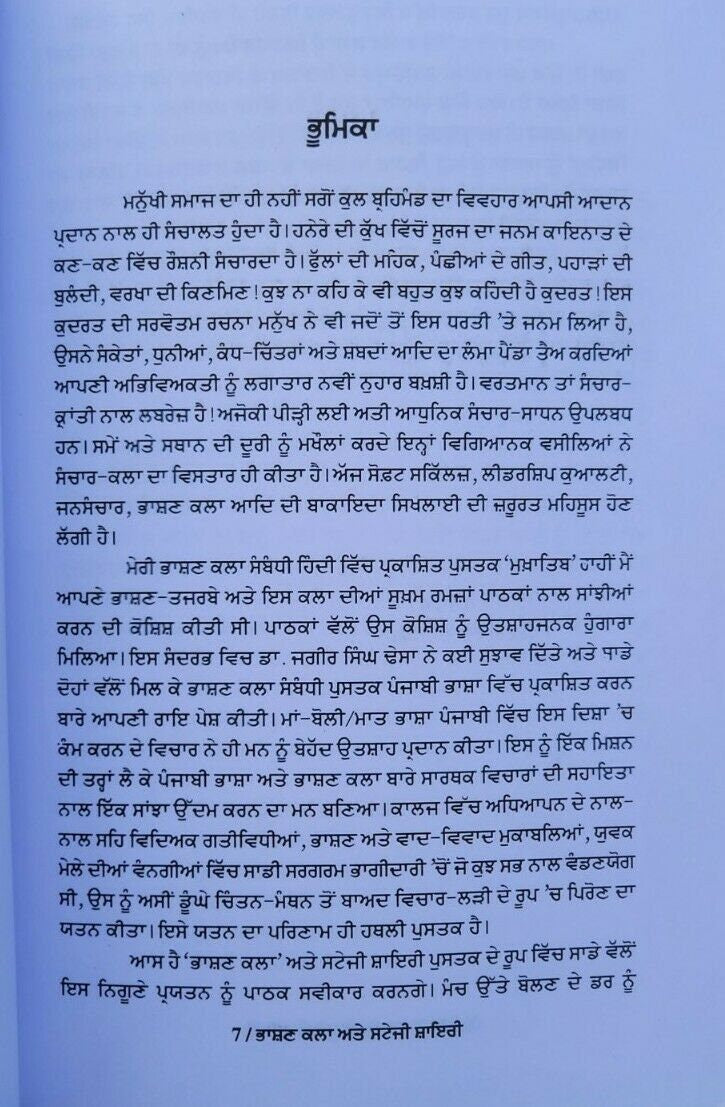 ਭੂਮਿਕਾ
ਮਨੁੱਖੀ ਸਮਾਜ ਦਾ ਹੀ ਨਹੀਂ ਸਗੋਂ ਕੁਲ ਬ੍ਰਹਿਮੰਡ ਦਾ ਵਿਵਹਾਰ ਆਪਸੀ ਆਦਾਨ
ਪ੍ਰਦਾਨ ਨਾਲ ਹੀ ਸੰਚਾਲਤ ਹੁੰਦਾ ਹੈ। ਹਨੇਰੇ ਦੀ ਕੁੱਖ ਵਿੱਚੋਂ ਸੂਰਜ ਦਾ ਜਨਮ ਕਾਇਨਾਤ ਦੇ
ਕਣ-ਕਣ ਵਿੱਚ ਰੌਸ਼ਨੀ ਸੰਚਾਰਦਾ ਹੈ। ਫੁੱਲਾਂ ਦੀ ਮਹਿਕ, ਪੰਛੀਆਂ ਦੇ ਗੀਤ, ਪਹਾੜਾਂ ਦੀ
ਬੁਲੰਦੀ, ਵਰਖਾ ਦੀ ਕਿਣਮਿਣ ! ਕੁਝ ਨਾ ਕਹਿ ਕੇ ਵੀ ਬਹੁਤ ਕੁਝ ਕਹਿੰਦੀ ਹੈ ਕੁਦਰਤ ! ਇਸ
ਕੁਦਰਤ ਦੀ ਸਰਵੋਤਮ ਰਚਨਾ ਮਨੁੱਖ ਨੇ ਵੀ ਜਦੋਂ ਤੋਂ ਇਸ ਧਰਤੀ ’ਤੇ ਜਨਮ ਲਿਆ ਹੈ,
ਉਸਨੇ ਸੰਕੇਤਾਂ, ਧੁਨੀਆਂ, ਕੰਧ-ਚਿੱਤਰਾਂ ਅਤੇ ਸ਼ਬਦਾਂ ਆਦਿ ਦਾ ਲੰਮਾ ਪੈਂਡਾ ਤੈਅ ਕਰਦਿਆਂ
ਆਪਣੀ ਅਭਿਵਿਅਕਤੀ ਨੂੰ ਲਗਾਤਾਰ ਨਵੀਂ ਨੁਹਾਰ ਬਖ਼ਸ਼ੀ ਹੈ। ਵਰਤਮਾਨ ਤਾਂ ਸੰਚਾਰ-
ਕ੍ਰਾਂਤੀ ਨਾਲ ਲਬਰੇਜ਼ ਹੈ ! ਅਜੋਕੀ ਪੀੜ੍ਹੀ ਲਈ ਅਤੀ ਆਧੁਨਿਕ ਸੰਚਾਰ-ਸਾਧਨ ਉਪਲਬਧ
ਹਨ। ਸਮੇਂ ਅਤੇ ਸਥਾਨ ਦੀ ਦੂਰੀ ਨੂੰ ਮਖੌਲਾਂ ਕਰਦੇ ਇਨ੍ਹਾਂ ਵਿਗਿਆਨਕ ਵਸੀਲਿਆਂ ਨੇ
ਸੰਚਾਰ-ਕਲਾ ਦਾ ਵਿਸਤਾਰ ਹੀ ਕੀਤਾ ਹੈ। ਅੱਜ ਸੋਫ਼ਟ ਸਕਿੱਲਜ਼, ਲੀਡਰਸ਼ਿਪ ਕੁਆਲਟੀ,
ਜਨਸੰਚਾਰ, ਭਾਸ਼ਣ ਕਲਾ ਆਦਿ ਦੀ ਬਾਕਾਇਦਾ ਸਿਖਲਾਈ ਦੀ ਜ਼ਰੂਰਤ ਮਹਿਸੂਸ ਹੋਣ
ਲੱਗੀ ਹੈ।
ਮੇਰੀ ਭਾਸ਼ਣ ਕਲਾ ਸੰਬੰਧੀ ਹਿੰਦੀ ਵਿੱਚ ਪ੍ਰਕਾਸ਼ਿਤ ਪੁਸਤਕ ‘ਮੁਖ਼ਾਤਿਬ’ ਰਾਹੀਂ ਮੈਂ
ਆਪਣੇ ਭਾਸ਼ਣ-ਤਜਰਬੇ ਅਤੇ ਇਸ ਕਲਾ ਦੀਆਂ ਸੂਖ਼ਮ ਰਮਜ਼ਾਂ ਪਾਠਕਾਂ ਨਾਲ ਸਾਂਝੀਆਂ
ਕਰਨ ਦੀ ਕੋਸ਼ਿਸ਼ ਕੀਤੀ ਸੀ। ਪਾਠਕਾਂ ਵੱਲੋਂ ਉਸ ਕੋਸ਼ਿਸ਼ ਨੂੰ ਉਤਸ਼ਾਹਜਨਕ ਹੁੰਗਾਰਾ
ਮਿਲਿਆ। ਇਸ ਸੰਦਰਭ ਵਿਚ ਡਾ. ਜਗੀਰ ਸਿੰਘ ਢੇਸਾ ਨੇ ਕਈ ਸੁਝਾਵ ਦਿੱਤੇ ਅਤੇ
ਦੋਹਾਂ ਵੱਲੋਂ ਮਿਲ ਕੇ ਭਾਸ਼ਣ ਕਲਾ ਸੰਬੰਧੀ ਪੁਸਤਕ ਪੰਜਾਬੀ ਭਾਸ਼ਾ ਵਿੱਚ ਪ੍ਰਕਾਸ਼ਿਤ ਕਰਨ
ਬਾਰੇ ਆਪਣੀ ਰਾਇ ਪੇਸ਼ ਕੀਤੀ। ਮਾਂ-ਬੋਲੀ/ਮਾਤ ਭਾਸ਼ਾ ਪੰਜਾਬੀ ਵਿੱਚ ਇਸ ਦਿਸ਼ਾ ’ਚ
ਕੰਮ ਕਰਨ ਦੇ ਵਿਚਾਰ ਨੇ ਹੀ ਮਨ ਨੂੰ ਬੇਹੱਦ ਉਤਸ਼ਾਹ ਪ੍ਰਦਾਨ ਕੀਤਾ। ਇਸ ਨੂੰ ਇੱਕ ਮਿਸ਼ਨ
ਦੀ ਤਰ੍ਹਾਂ ਲੈ ਕੇ ਪੰਜਾਬੀ ਭਾਸ਼ਾ ਅਤੇ ਭਾਸ਼ਣ ਕਲਾ ਬਾਰੇ ਸਾਰਥਕ ਵਿਚਾਰਾਂ ਦੀ ਸਹਾਇਤਾ
ਨਾਲ ਇੱਕ ਸਾਂਝਾ ਉੱਦਮ ਕਰਨ ਦਾ ਮਨ ਬਣਿਆ। ਕਾਲਜ ਵਿੱਚ ਅਧਿਆਪਨ ਦੇ ਨਾਲ-
ਨਾਲ ਸਹਿ ਵਿਦਿਅਕ ਗਤੀਵਿਧੀਆਂ, ਭਾਸ਼ਣ ਅਤੇ ਵਾਦ-ਵਿਵਾਦ ਮੁਕਾਬਲਿਆਂ, ਯੁਵਕ
ਮੇਲੇ ਦੀਆਂ ਵੰਨਗੀਆਂ ਵਿੱਚ ਸਾਡੀ ਸਰਗਰਮ ਭਾਗੀਦਾਰੀ ’ਚੋਂ ਜੋ ਕੁਝ ਸਭ ਨਾਲ ਵੰਡਣਯੋਗ
ਸੀ, ਉਸ ਨੂੰ ਅਸੀਂ ਡੂੰਘੇ ਚਿੰਤਨ-ਮੰਥਨ ਤੋਂ ਬਾਅਦ ਵਿਚਾਰ-ਲੜੀ ਦੇ ਰੂਪ ’ਚ ਪਿਰੋਣ ਦਾ
ਯਤਨ ਕੀਤਾ। ਇਸੇ ਯਤਨ ਦਾ ਪਰਿਣਾਮ ਹੀ ਹਥਲੀ ਪੁਸਤਕ ਹੈ।
ਆਸ ਹੈ ‘ਭਾਸ਼ਣ ਕਲਾ’ ਅਤੇ ਸਟੇਜੀ ਸ਼ਾਇਰੀ ਪੁਸਤਕ ਦੇ ਰੂਪ ਵਿੱਚ ਸਾਡੇ ਵੱਲੋਂ
ਇਸ ਨਿਗੂਣੇ ਪ੍ਰਯਤਨ ਨੂੰ ਪਾਠਕ ਸਵੀਕਾਰ ਕਰਨਗੇ। ਮੰਚ ਉੱਤੇ ਬੋਲਣ ਦੇ ਡਰ ਨੂੰ
7 / ਭਾਸ਼ਣ ਕਲਾ ਅਤੇ ਸਟੇਜੀ ਸ਼ਾਇਰੀ